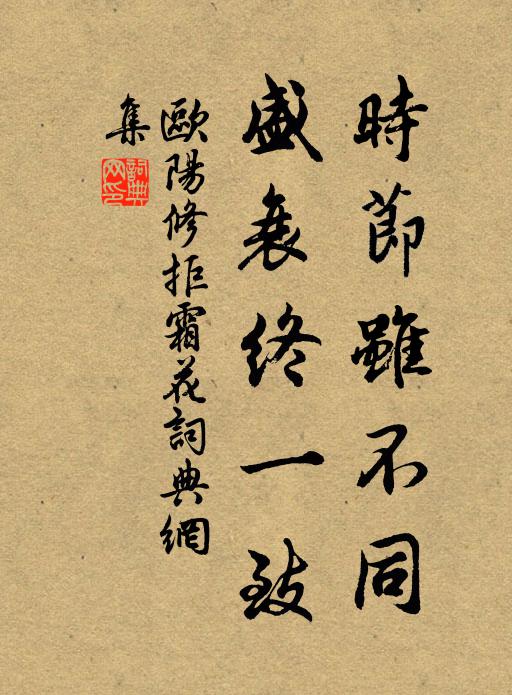 時節雖不同
盛衰終一致
歐陽修拒霜花詞典網
集
詞典網印